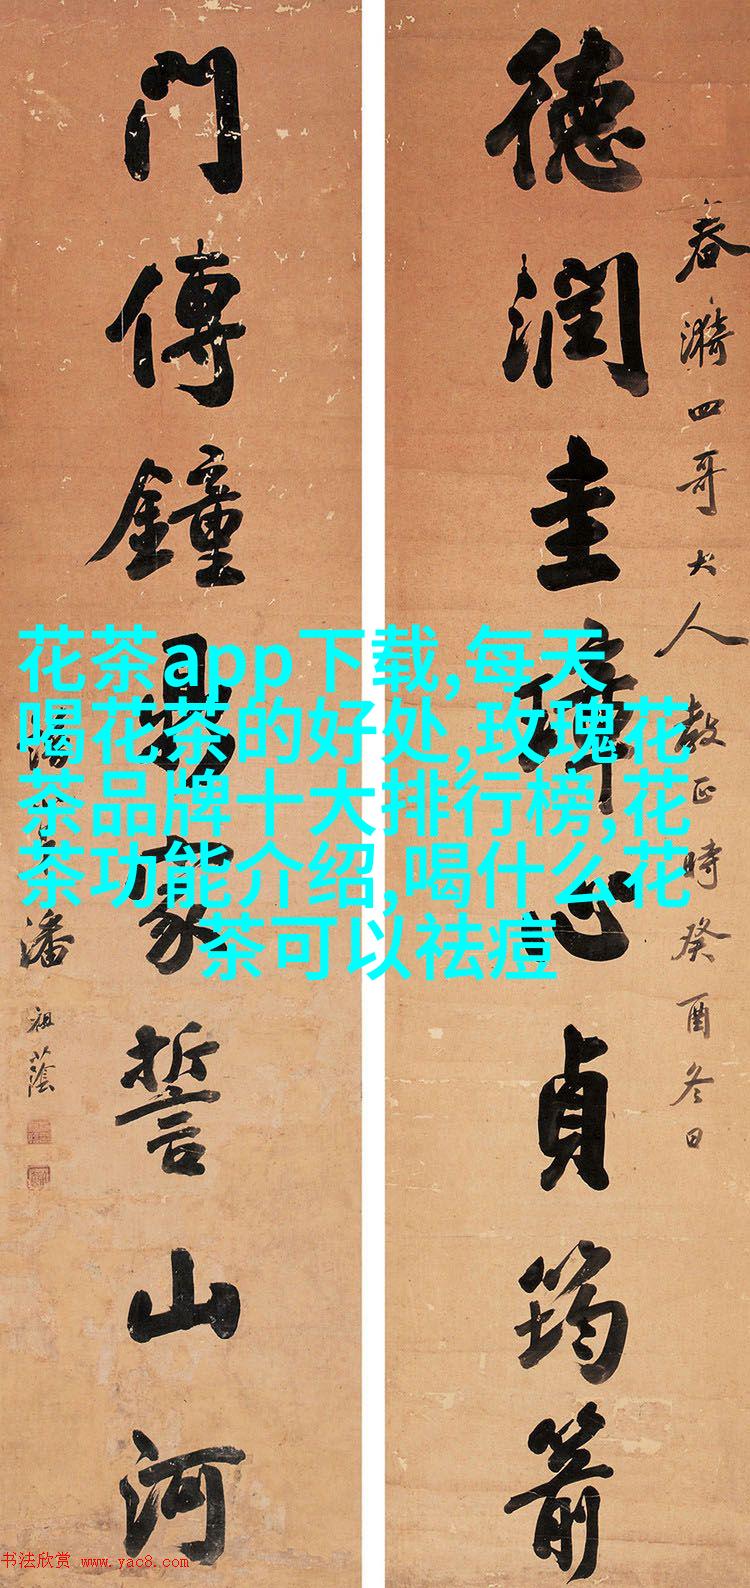 春漪四哥大人教正時癸酉冬日
德潤圭璋心貞筠箭
門傳鐘鼎家誓山河
潘祖蔭
花茶app下载,每天
喝花茶的好处,玫瑰花
茶品牌十大排行榜,花
茶功能介绍,喝什么花
茶可以祛痘
书法欣赏 www.yac8.com